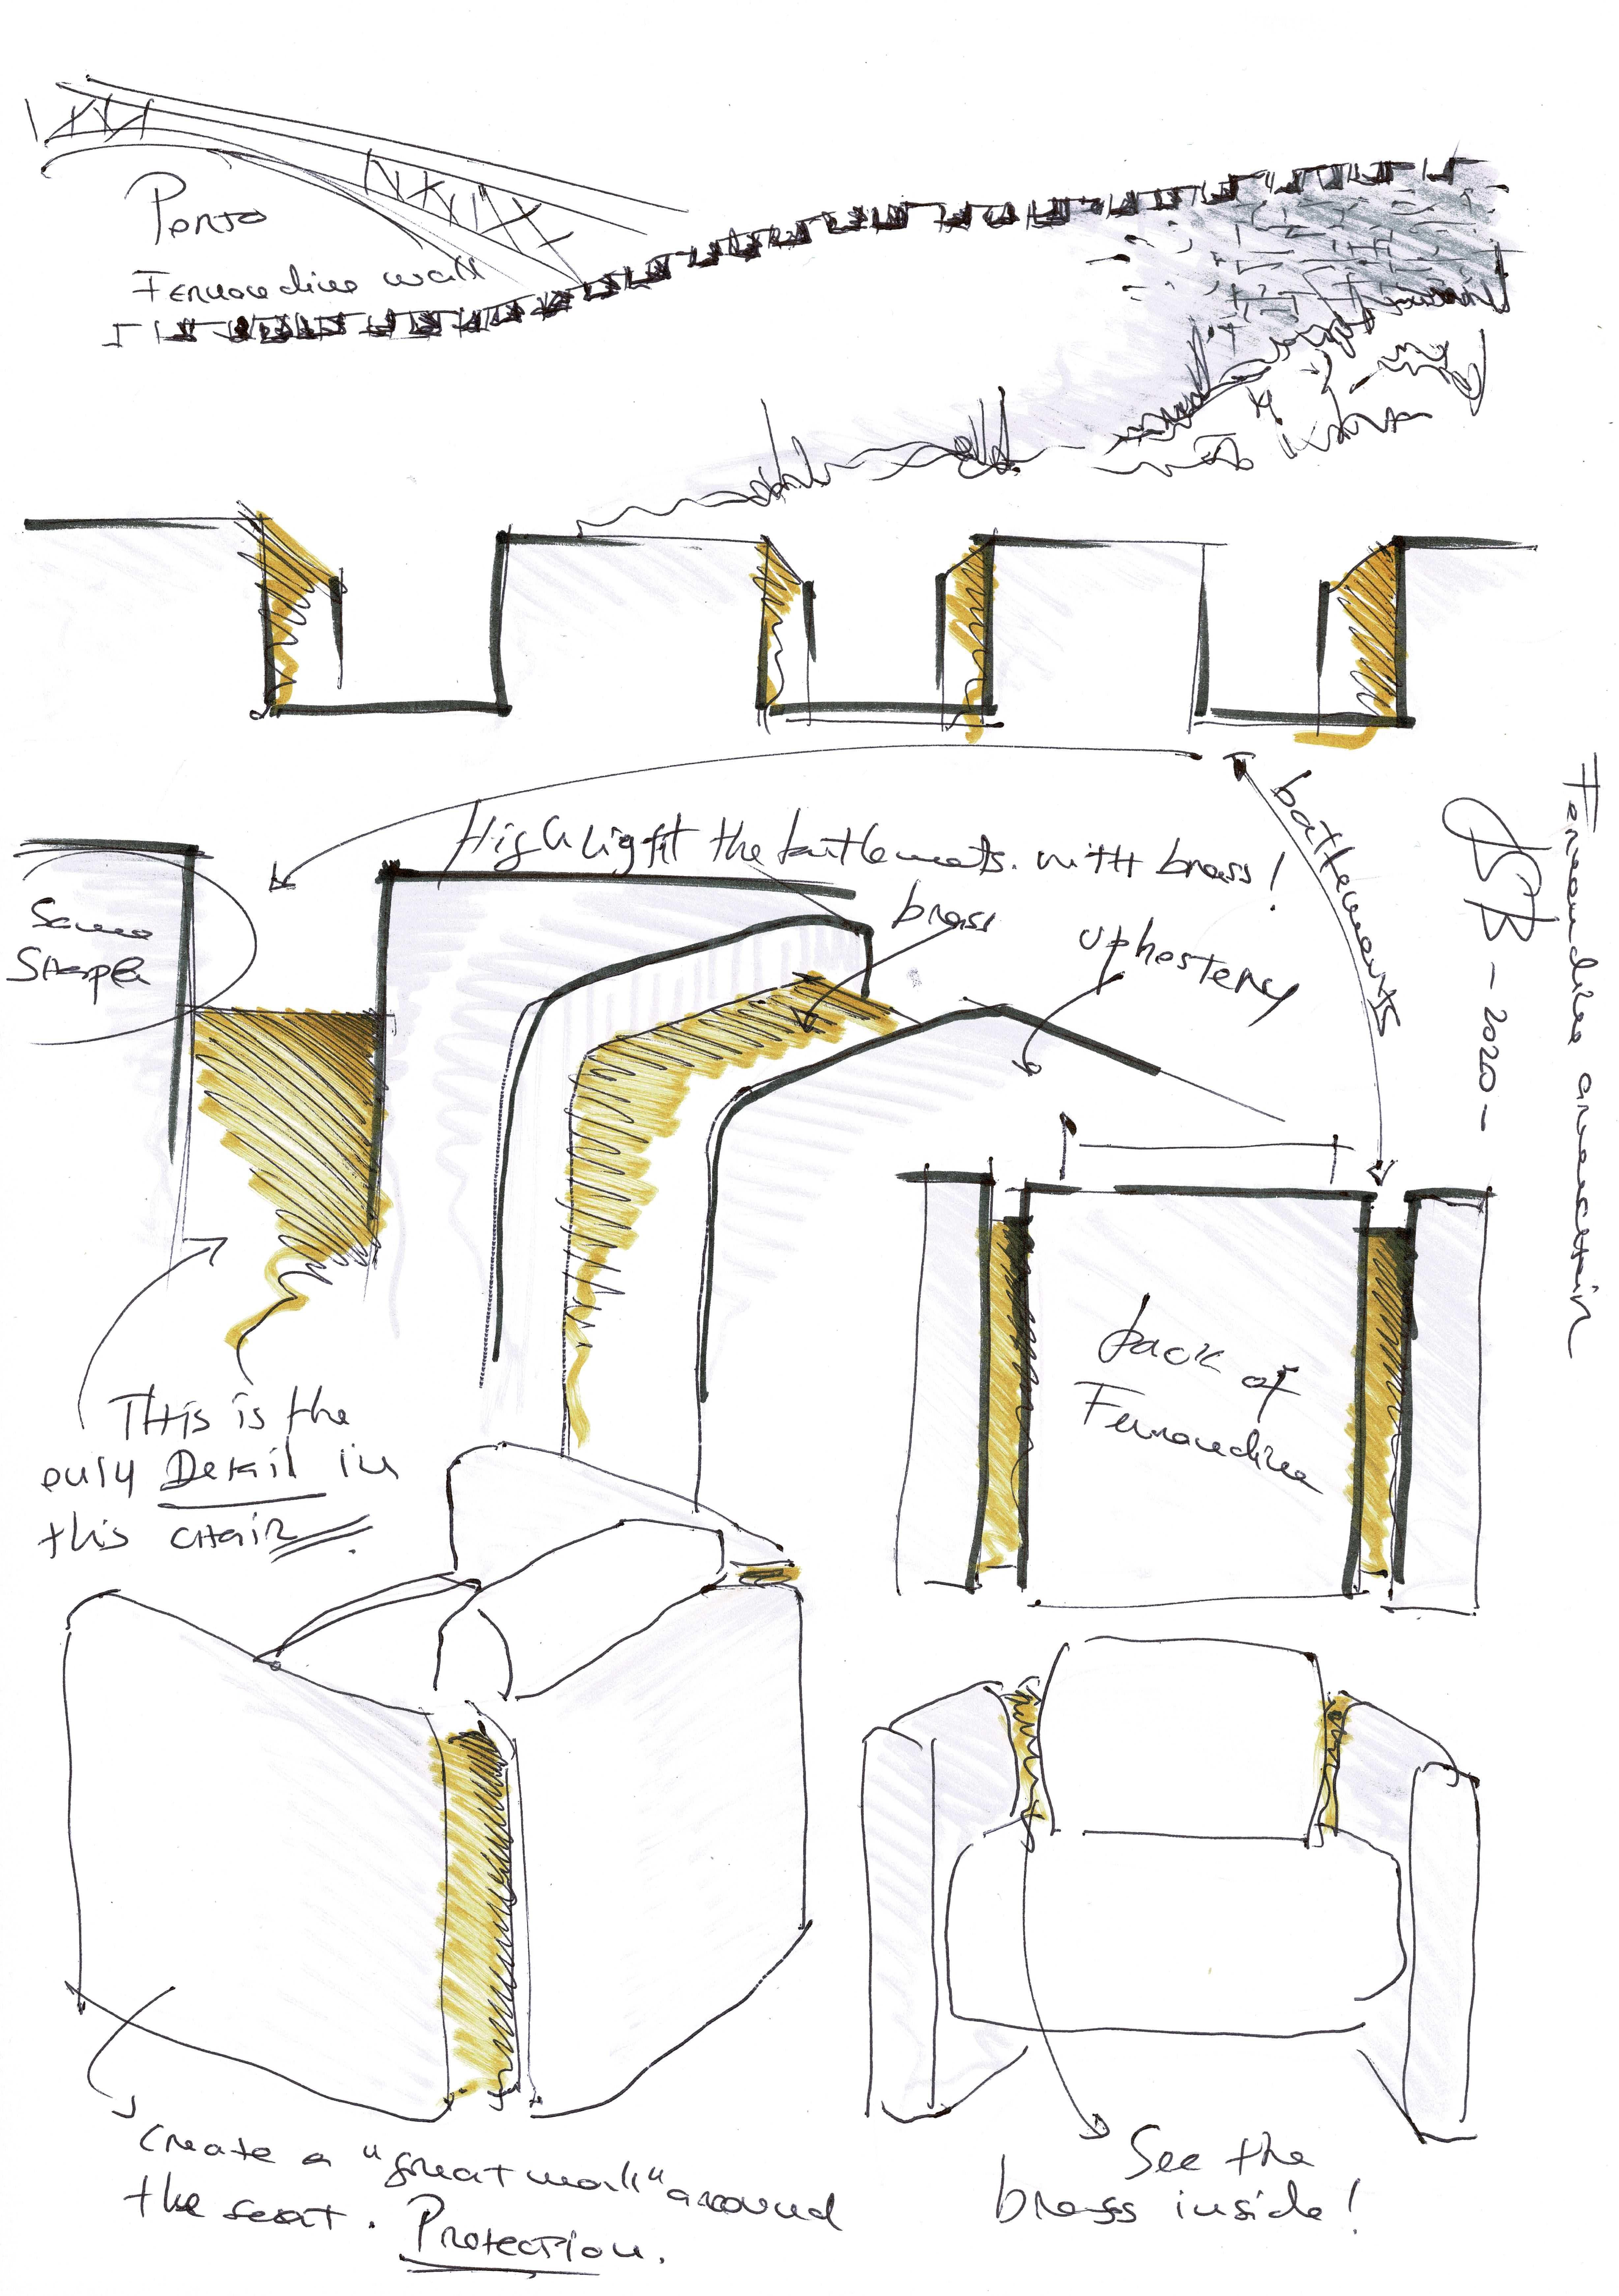 Porto
Fernandine wall
Highlight the battlements with brass!
battlements
Same
Shape
brass
uphostery
This is the
only Detail in
this chair.
back of
Fernandine
Fernandine armchair
JSB - 2020 -
Create a "great wall" around
the seat. Protection.
See the
brass inside!